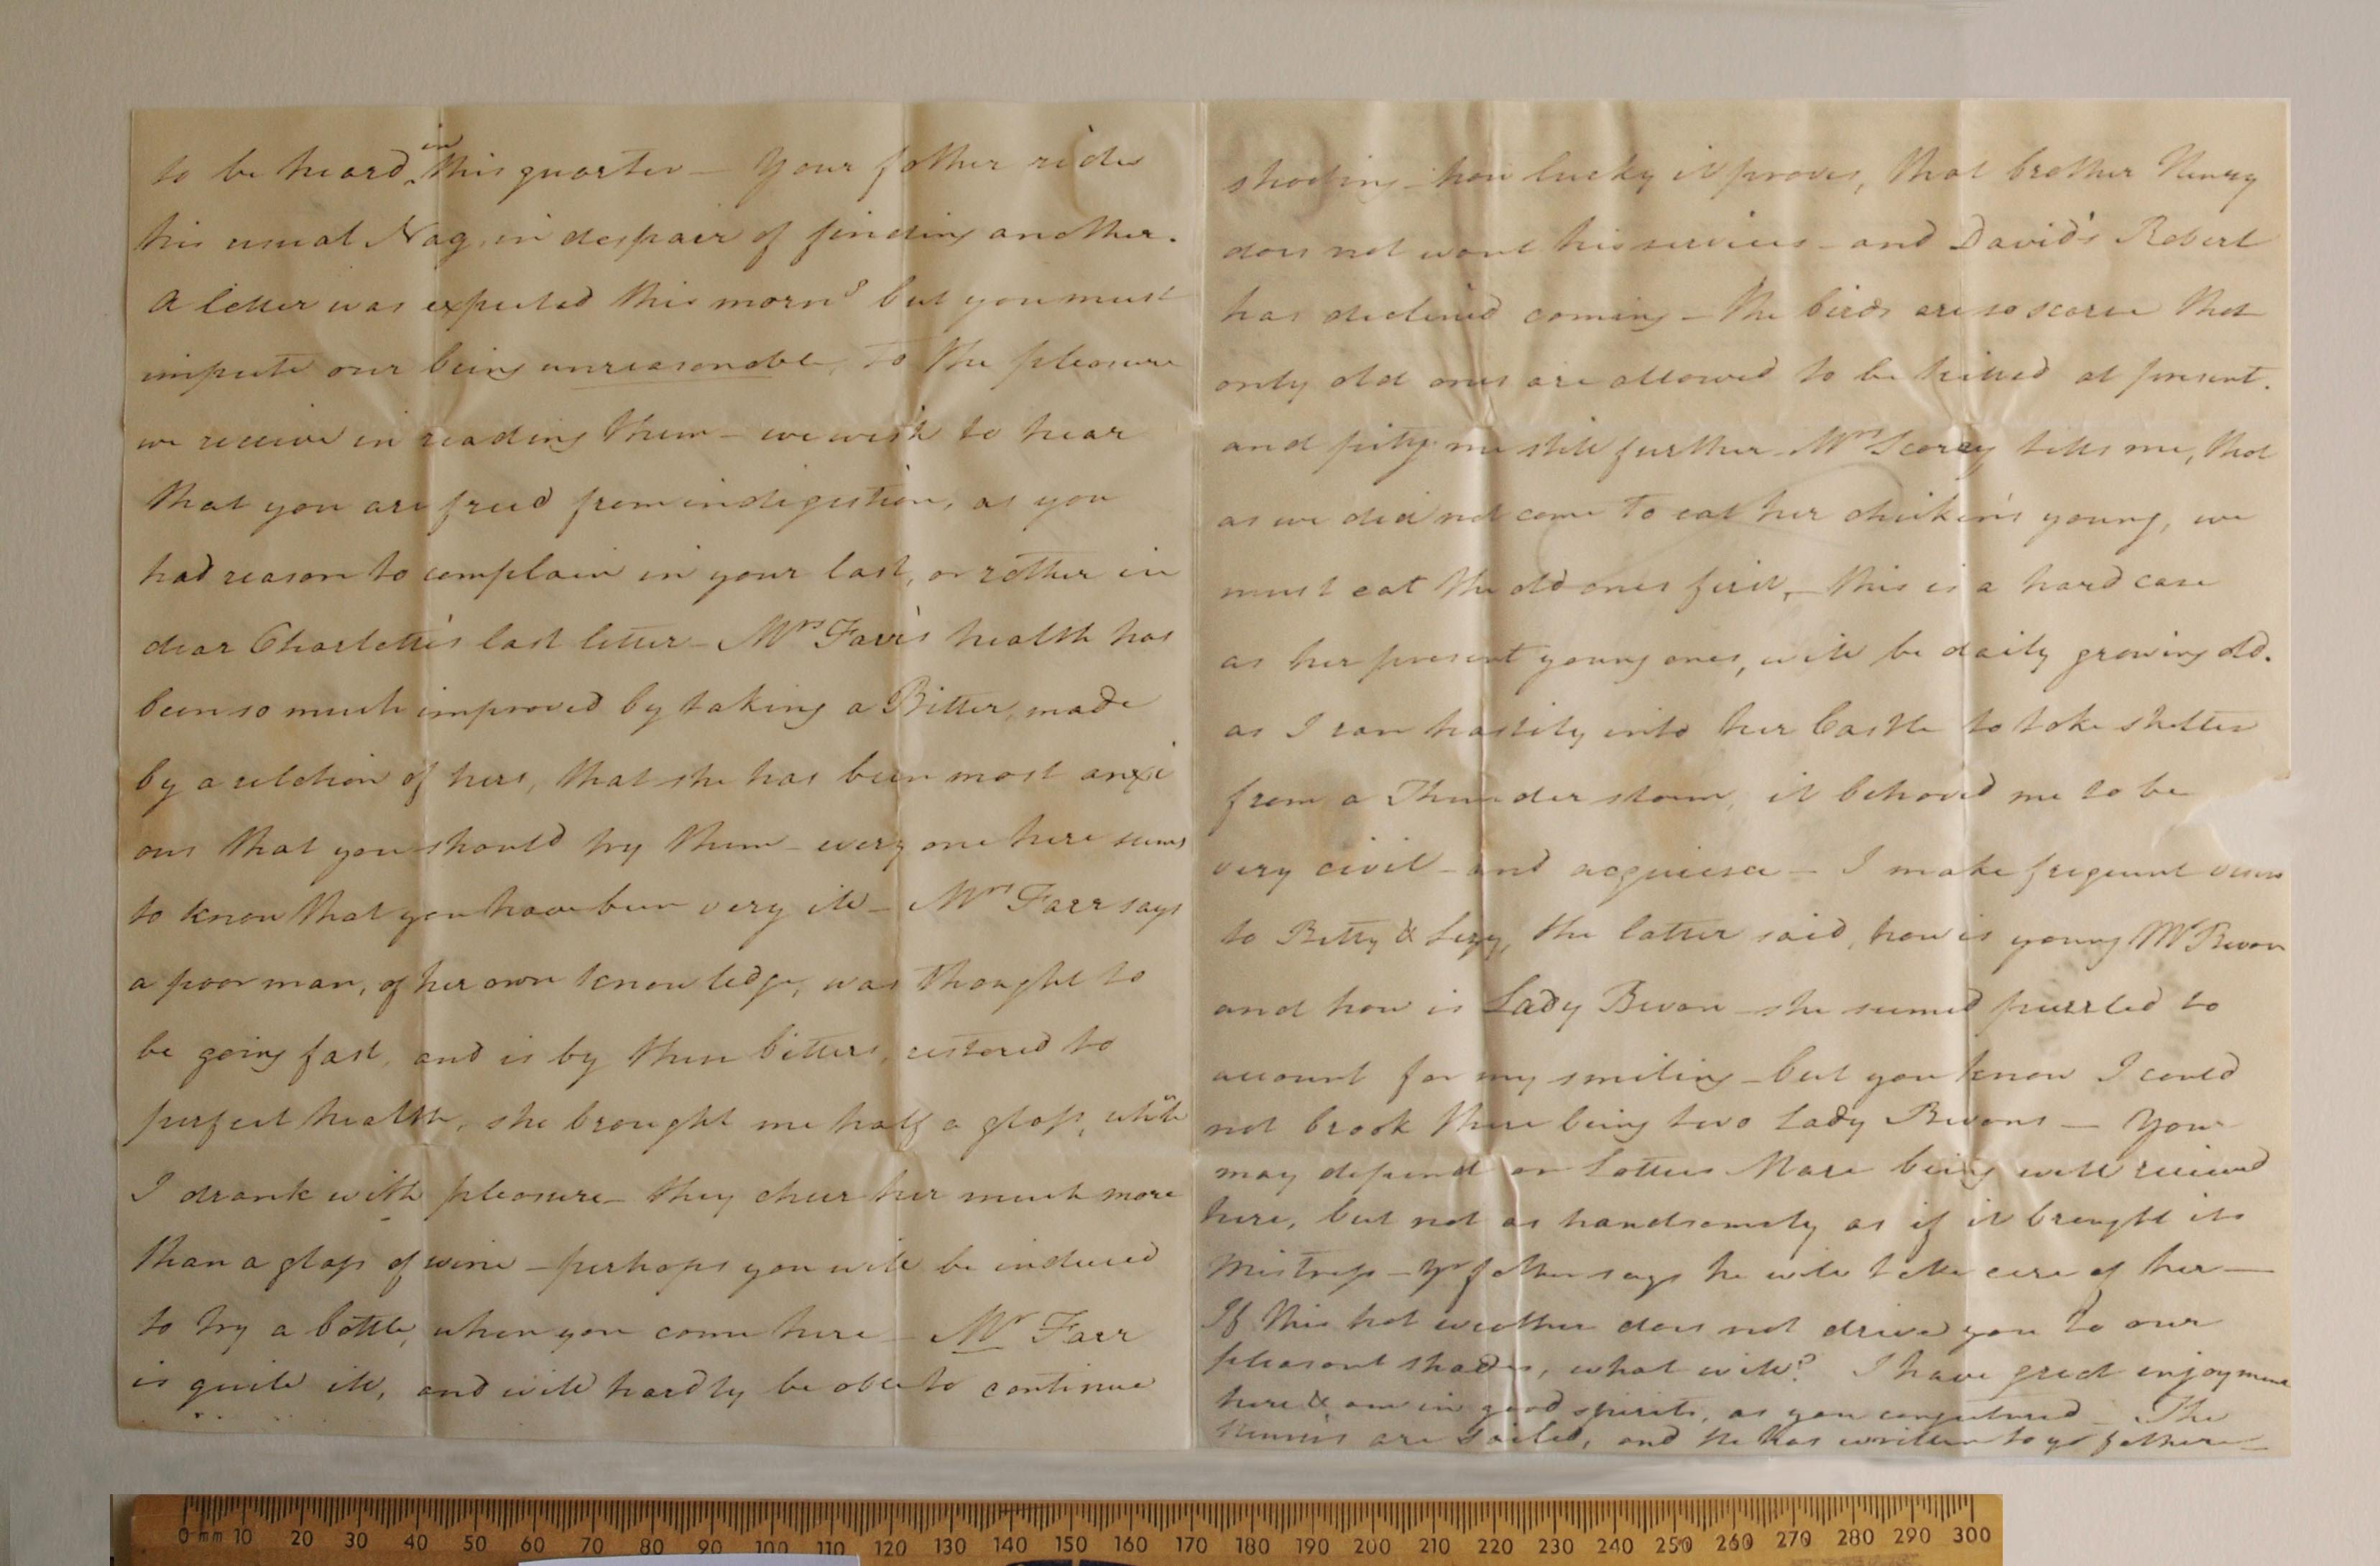 to be heard in this quarter — Your father rides
his usual Nag, in despair of finding another.
A letter was expected this morng but you must
impute our being unreasonable, to the pleasure
we receive in reading them — we wish to hear
that you are freed from indigestion, as you
had reason to complain in your last, or rather in
dear Charlotte's last letter — Mrs Farr's health has
been so much improved by taking a Bitter, made
by a relation of hers, that she has been most anxi
ous that you should try them — every one here seems
to know that you have been very ill — Mrs Farr says
a poor man, of her own knowledge, was thought to
be going fast, and is by these bitters, restored to
perfect health, she brought me half a glass, which
I drank with pleasure — they cheer her much more
than a glass of wine — perhaps you will be induced
to try a bottle, when you come here — Mr Farr
is quite ill, and will hardly be able to continue
shooting — how lucky it proves, that brother Henry
does not want his services — and David's Robert
has declined coming — the birds are so scarce that
only old ones are allowed to be killed at present.
and pity me still further — Mrs Scorey tells me, that
as we did not come to eat her chicken's young, we
must eat the old ones first, — this is a hard case
as her present young ones, will be daily growing old.
as I ran hastily into her Castle to take shelter
from a Thunder storm, it behoved me to be
very civil — and acquiesce — I make frequent visits
to Betty & Lizy, the latter said, how is young Mr Bevan
and how is Lady Bevan — she seemed puzzled to
account for my smiling — but you know I could
not brook there being two Lady Bevans — You
may depend on Mare being well received
here, but not as handsomely as if it brought its
Mistress — Yr father says he will take care of her —
If this hot weather does not drive you to our
pleasant shades, what will? I have great enjoyment
here & am in good spirits, as you conjectured — The
are sailed, and he has written to yr father —